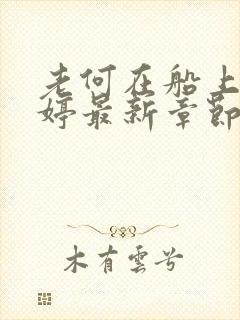 老何在船上
婷最新章節
木有雲兮